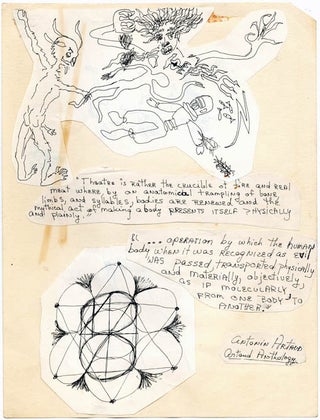 "Theatre is rather the crucible of fire and real
meat where by an anatomical trampling of bone
limbs, and syllables, bodies are renewed and the
mythical act of making a body PRESENTS ITSELF PHYSICALLY
and plainly
"... operation by which the human
body when it was recognized as evil
WAS passed, transported physically
and materially, objectively
as IF MOLECULARLY
FROM ONE BODY TO
ANOTHER."
Antonin Artaud
Artaud Anthology